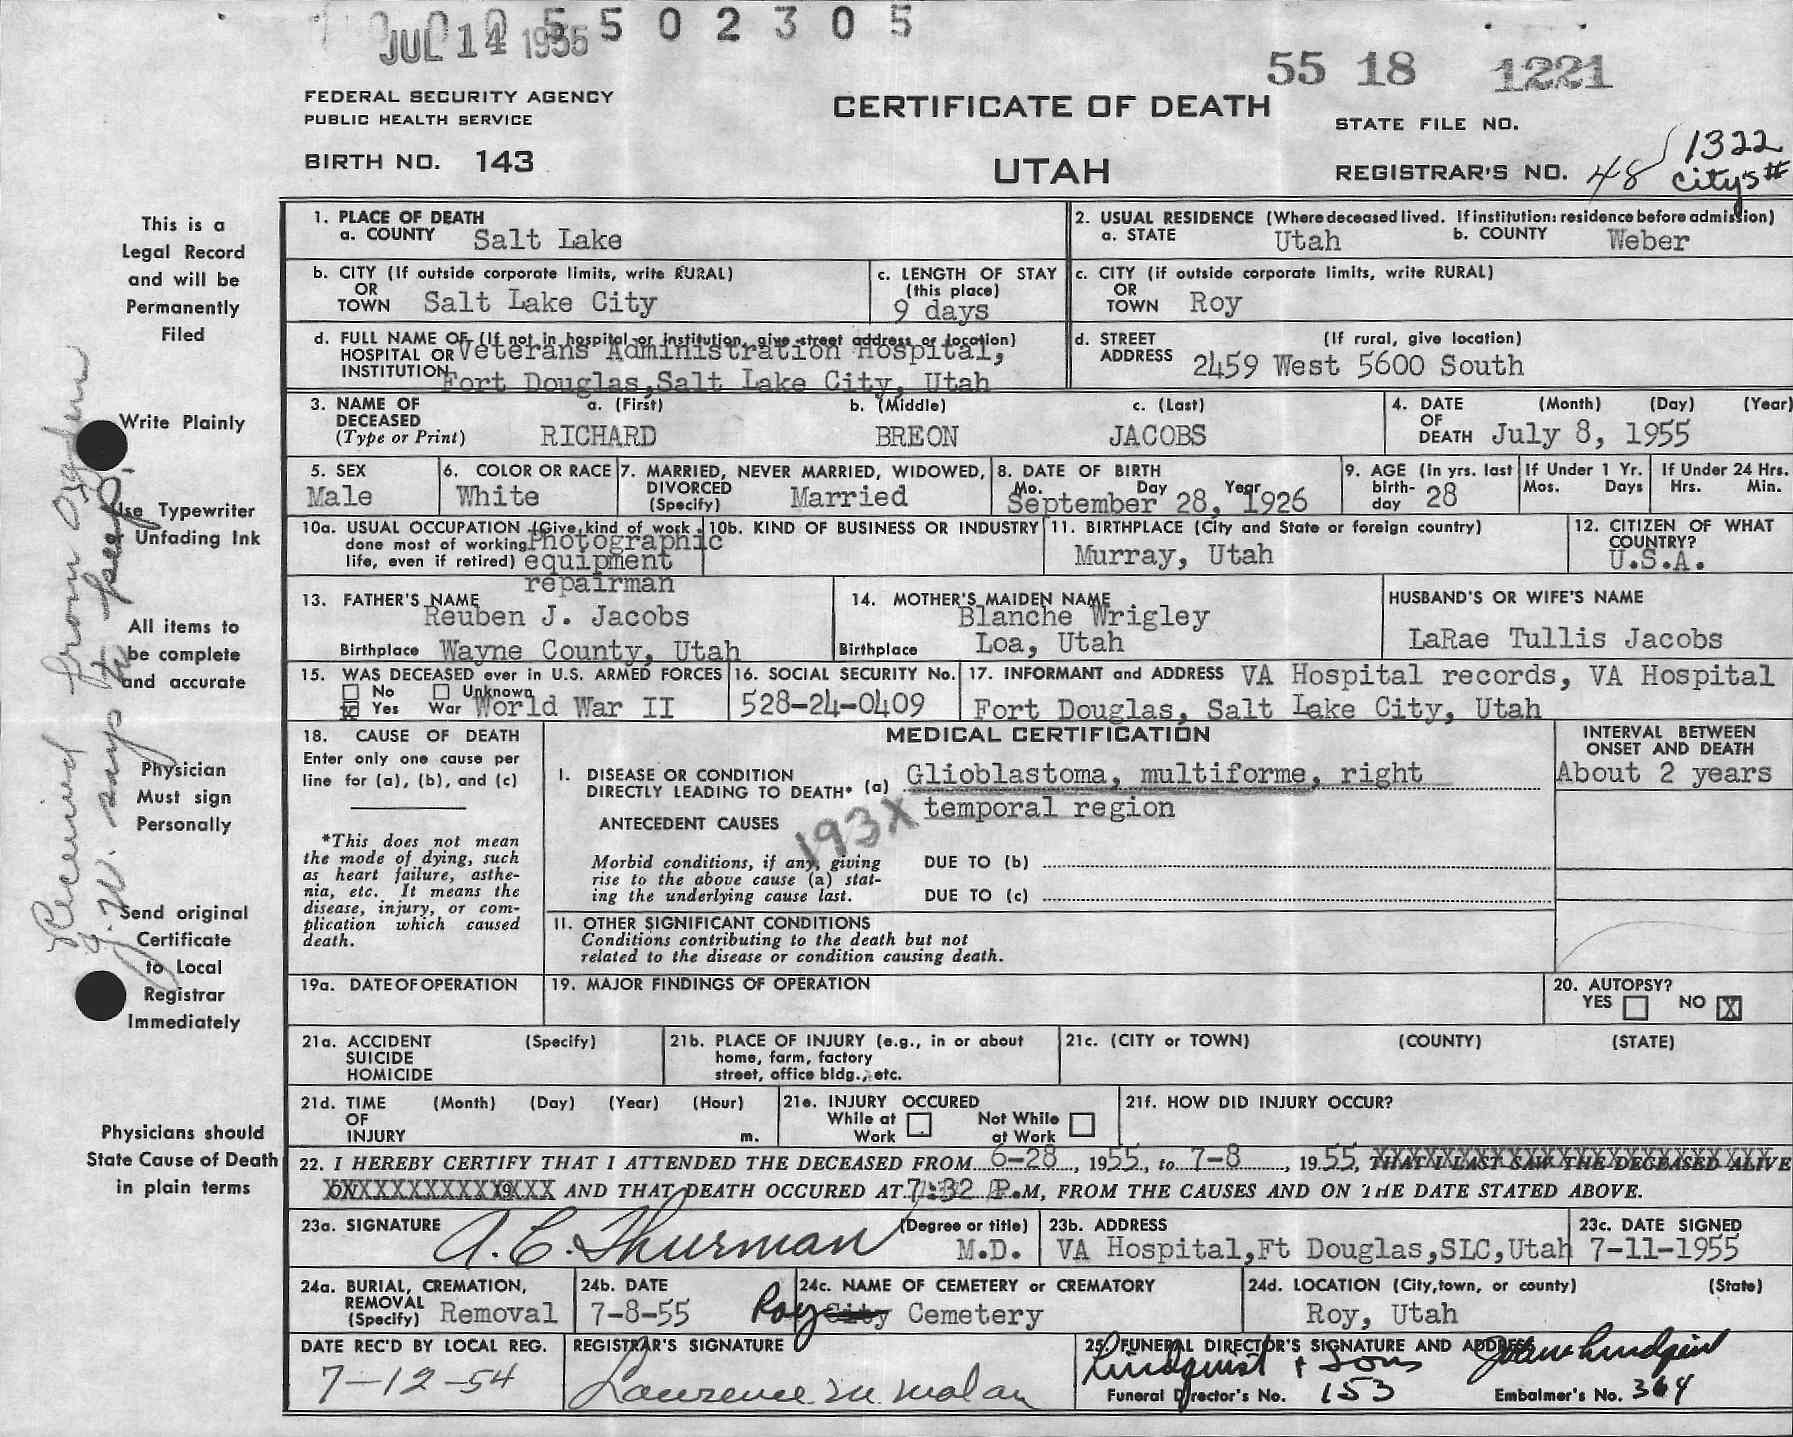 JUL 14 1955 5 5 0 2 3 0 5
55 18 1221
FEDERAL SECURITY AGENCY
PUBLIC HEALTH SERVICE
CERTIFICATE OF DEATH
STATE FILE NO.
BIRTH NO. 143
UTAH
REGISTRAR'S NO. 48 / 1322
City's #
This is a
Legal Record
and will be
Permanently
Filed
Write Plainly
Use Typewriter
Unfading Ink
All items to
be complete
and accurate
Physician
Must sign
Personally
Send original
Certificate
to Local
Registrar
Immediately
Physicians should
State Cause of Death
in plain terms
Received from Ogden
says to keep!
1. PLACE OF DEATH
a. COUNTY Salt Lake
2. USUAL RESIDENCE (Where deceased lived. If institution: residence before admission)
a. STATE Utah b. COUNTY Weber
b. CITY (If outside corporate limits, write RURAL)
OR
TOWN Salt Lake City
c. LENGTH OF STAY
(this place)
9 days
c. CITY (if outside corporate limits, write RURAL)
OR
TOWN Roy
d. FULL NAME OF (If not in hospital or institution, give street address or location)
HOSPITAL OR Veterans Administration Hospital,
INSTITUTION Fort Douglas,Salt Lake City, Utah
d. STREET (If rural, give location)
ADDRESS 2459 West 5600 South
3. NAME OF a. (First) b. (Middle) c. (Last)
DECEASED
(Type or Print) RICHARD BREON JACOBS
4. DATE (Month) (Day) (Year)
OF
DEATH July 8, 1955
5. SEX
Male
6. COLOR OR RACE
White
7. MARRIED, NEVER MARRIED, WIDOWED,
DIVORCED
(Specify) Married
8. DATE OF BIRTH
Mo. Day Year
September 28, 1926
9. AGE (In yrs. last
birth-
day 28
If Under 1 Yr.
Mos. Days
If Under 24 Hrs.
Hrs. Min.
10a. USUAL OCCUPATION (Give kind of work
done most of working Photographic
life, even if retired) equipment
repairman
10b. KIND OF BUSINESS OR INDUSTRY
11. BIRTHPLACE (City and State or foreign country)
Murray, Utah
12. CITIZEN OF WHAT
COUNTRY?
U.S.A.
13. FATHER'S NAME
Reuben J. Jacobs
Birthplace Wayne County, Utah
14. MOTHER'S MAIDEN NAME
Blanche Wrigley
Birthplace Loa, Utah
HUSBAND'S OR WIFE'S NAME
LaRae Tullis Jacobs
15. WAS DECEASED ever in U.S. ARMED FORCES
No Unknown
Yes War World War II
16. SOCIAL SECURITY No.
528-24-0409
17. INFORMANT and ADDRESS VA Hospital records, VA Hospital
Fort Douglas, Salt Lake City, Utah
18. CAUSE OF DEATH
Enter only one cause per
line for (a), (b), and (c)
*This does not mean
the mode of dying, such
as heart failure, asthe-
nia, etc. It means the
disease, injury, or com-
plication which caused
death.
MEDICAL CERTIFICATION
INTERVAL BETWEEN
ONSET AND DEATH
I. DISEASE OR CONDITION
DIRECTLY LEADING TO DEATH* (a) Glioblastoma, multiforme, right
temporal region
About 2 years
ANTECEDENT CAUSES
193X
Morbid conditions, if any, giving
rise to the above cause (a) stat-
ing the underlying cause last.
DUE TO (b)
DUE TO (c)
II. OTHER SIGNIFICANT CONDITIONS
Conditions contributing to the death but not
related to the disease or condition causing death.
19a. DATE OF OPERATION
19. MAJOR FINDINGS OF OPERATION
20. AUTOPSY?
YES NO X
21a. ACCIDENT (Specify)
SUICIDE
HOMICIDE
21b. PLACE OF INJURY (e.g., in or about
home, farm, factory
street, office bldg., etc.
21c. (CITY or TOWN) (COUNTY) (STATE)
21d. TIME (Month) (Day) (Year) (Hour)
OF
INJURY m.
21e. INJURY OCCURED
While at Not While
Work at Work
21f. HOW DID INJURY OCCUR?
22. I HEREBY CERTIFY THAT I ATTENDED THE DECEASED FROM 6-28, 1955, to 7-8, 1955, THAT I LAST SAW THE DECEASED ALIVE
ON XXXXXXXXXX19XXX AND THAT DEATH OCCURED AT 7:32 P.M, FROM THE CAUSES AND ON THE DATE STATED ABOVE.
23a. SIGNATURE A. C. Thurman (Degree or title)
M.D.
23b. ADDRESS
VA Hospital,Ft Douglas,SLC,Utah
23c. DATE SIGNED
7-11-1955
24a. BURIAL, CREMATION,
REMOVAL
(Specify) Removal
24b. DATE
7-8-55
24c. NAME OF CEMETERY or CREMATORY
Roy City Cemetery
24d. LOCATION (City,town, or county) (State)
Roy, Utah
DATE REC'D BY LOCAL REG.
7-12-54
REGISTRAR'S SIGNATURE
Lawrence M. Malan
25. FUNERAL DIRECTOR'S SIGNATURE AND ADDRESS
Lindquist + Sons John Lindquist
Funeral Director's No. 153 Embalmer's No. 364